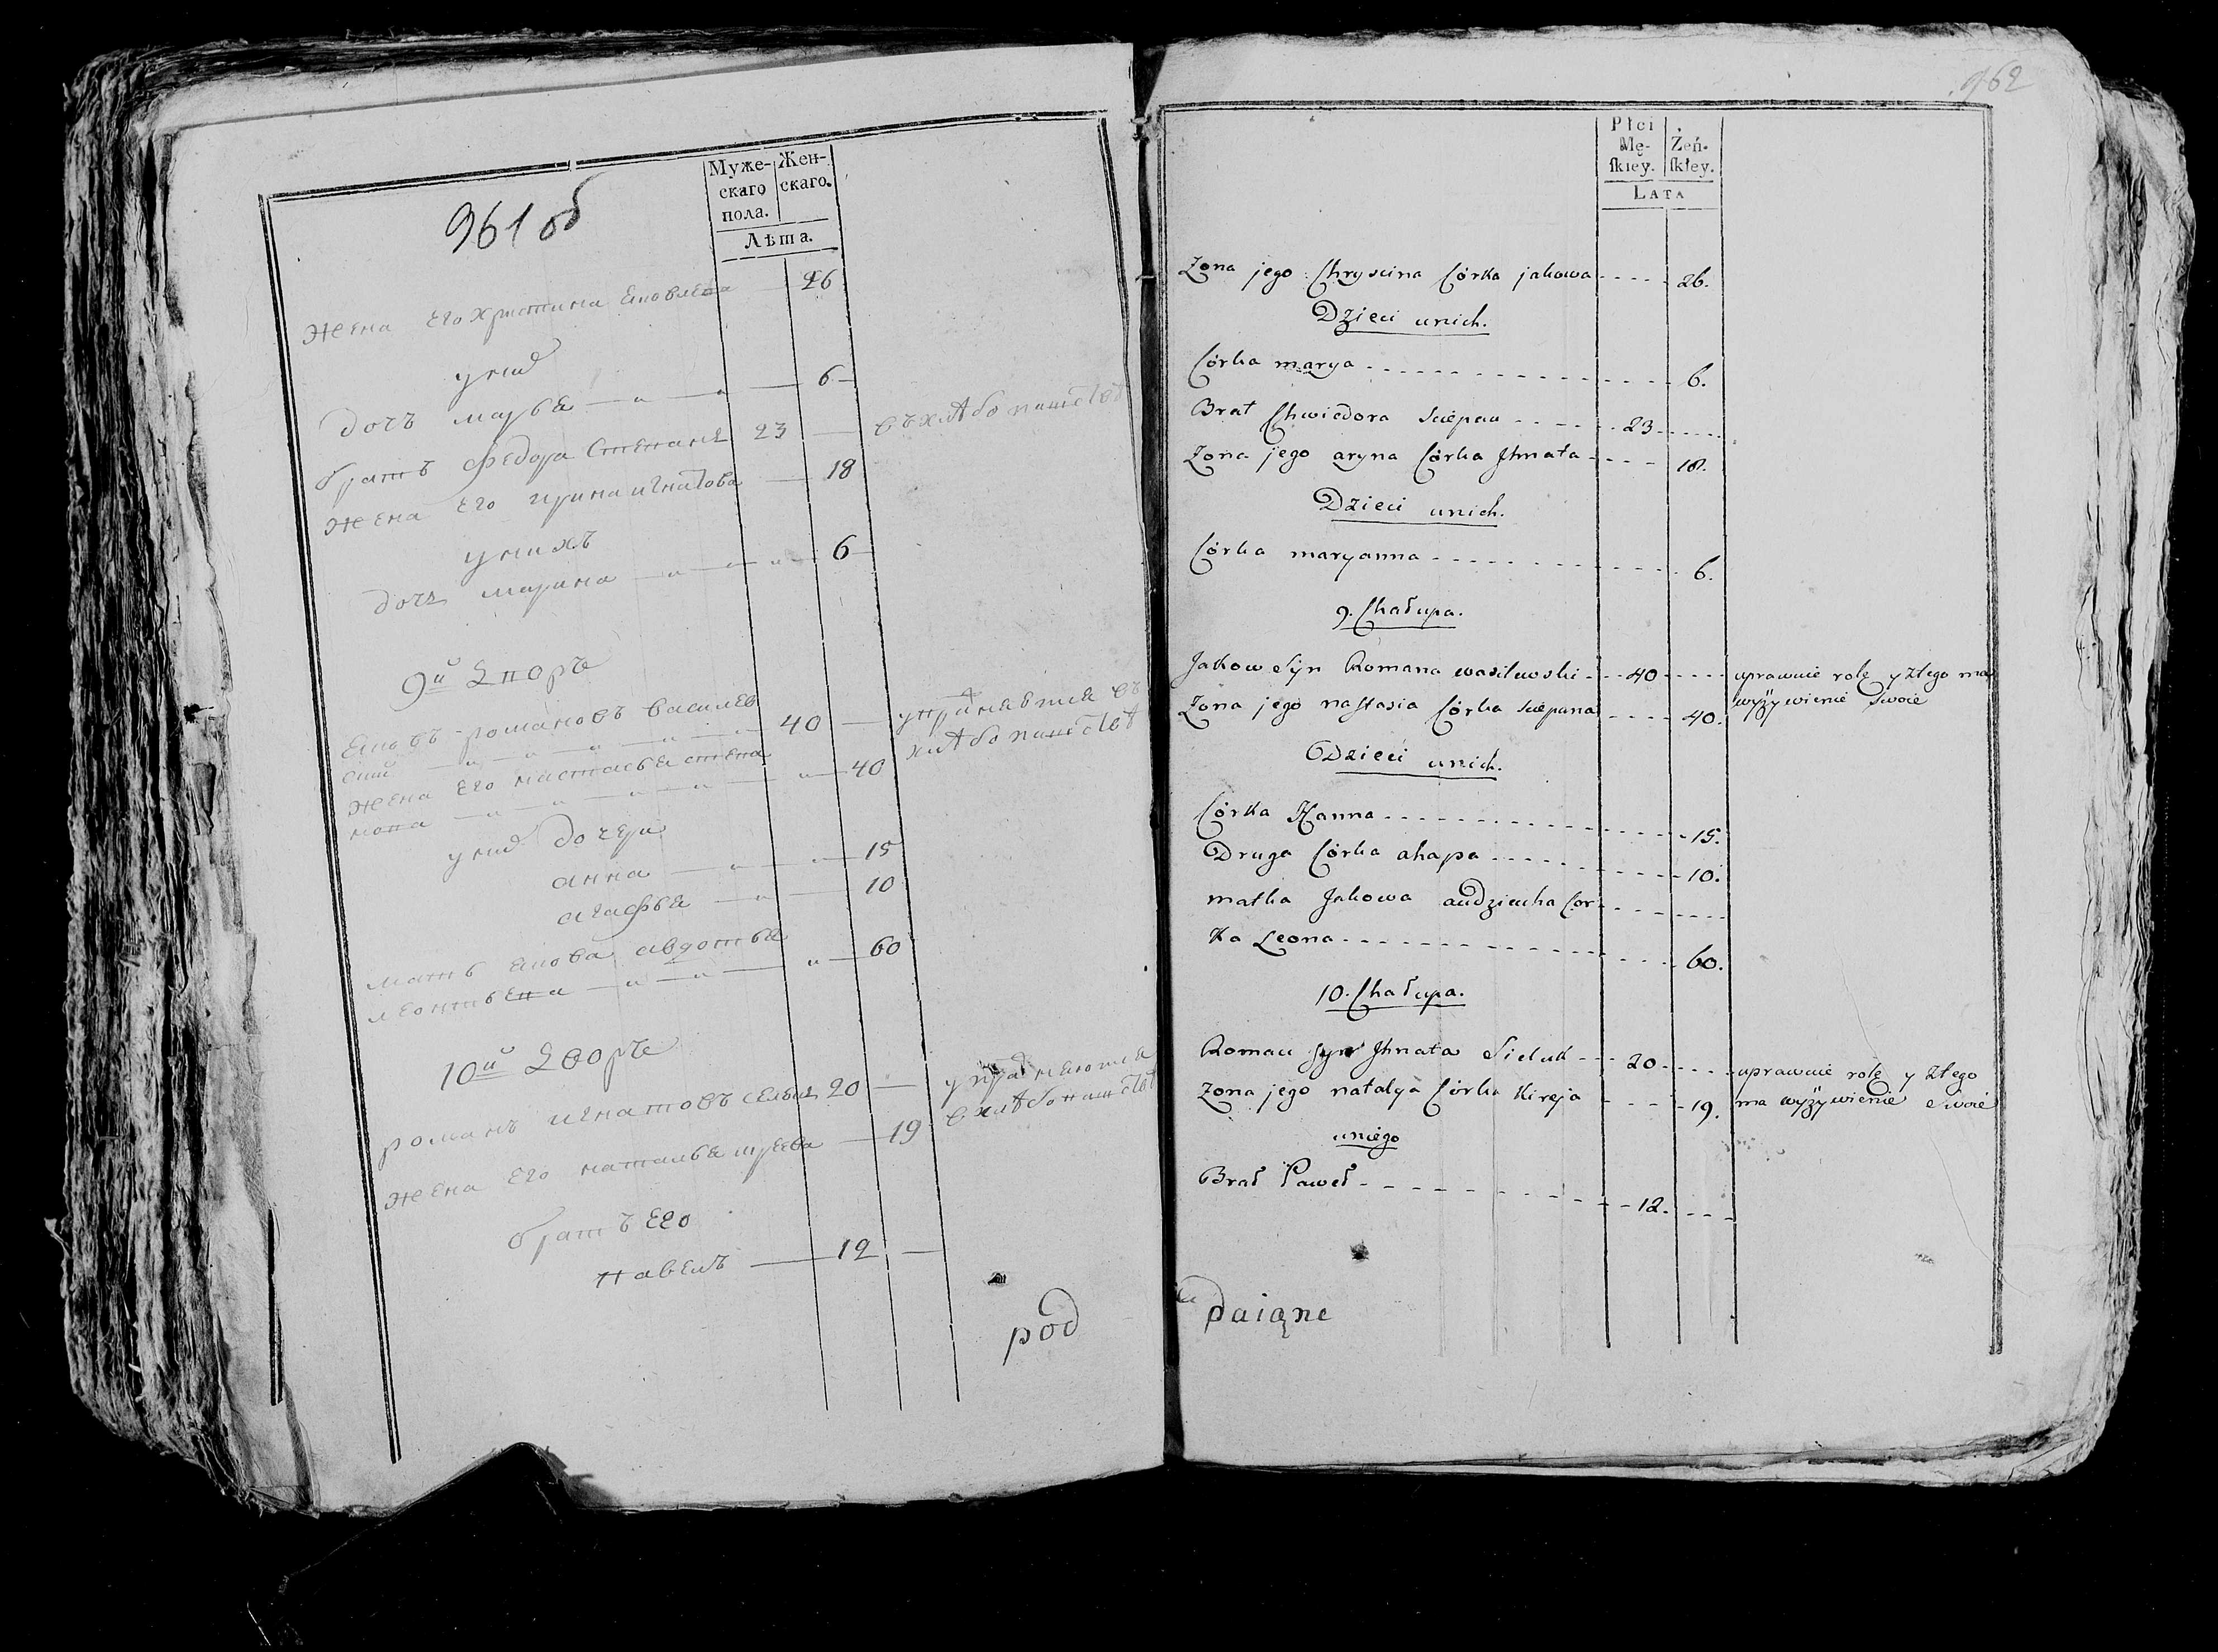 961 об
Муже-
скаго
пола.
Жен-
скаго.
Лѣта.
Жена Его Христина Яковлева 26
у нид
дочь марья 6
братъ Федора Степанъ 23 въ хлѣбопашствѣ
Жена Его ирина игнатова 18
у нихъ
дочь марина 6
9й Дворъ
Яковъ романовъ василев
ский 40 упражняется въ
хлѣбопашствѣ
Жена Его настасья степа
нова 40
у нид дочери
анна 15
агафья 10
мать Якова авдотья
леонтьева 60
10й Дворъ
романъ игнатовъ 20 упражняются
Жена Его наталья 19 в хлѣбопашствѣ
братъ Его
павелъ 12
pod
962
Płci
Mę-
ſkiey.
Żeń-
ſkiey.
LATA
Zona jego Chryscina Córka jakowa 26.
Dzieci unich.
Córka marya 6.
Brat Chwiedora Sciepan 23
Zona jego aryna Córka Jhnata 18.
Dzieci unich.
Córka maryanna 6.
9. Chałupa.
Jakow Syn Romana wasilewski 40 uprawuie rolę y ztego ma
Zona jego nastasia Córka Sciepana 40. wyżywienie Swoie
Dzieci unich.
Córka Hanna 15.
Druga Córka ahapa 10.
matka Jakowa audziucha Cor
ka Leona 60.
10. Chałupa.
Roman Syn Jhnata Sieluk 20 uprawuie rolę y ztego
Zona jego natalya Córka Kireja 19. ma wyżywienie Swoie
uniego
Brat Paweł 12.
daiąne